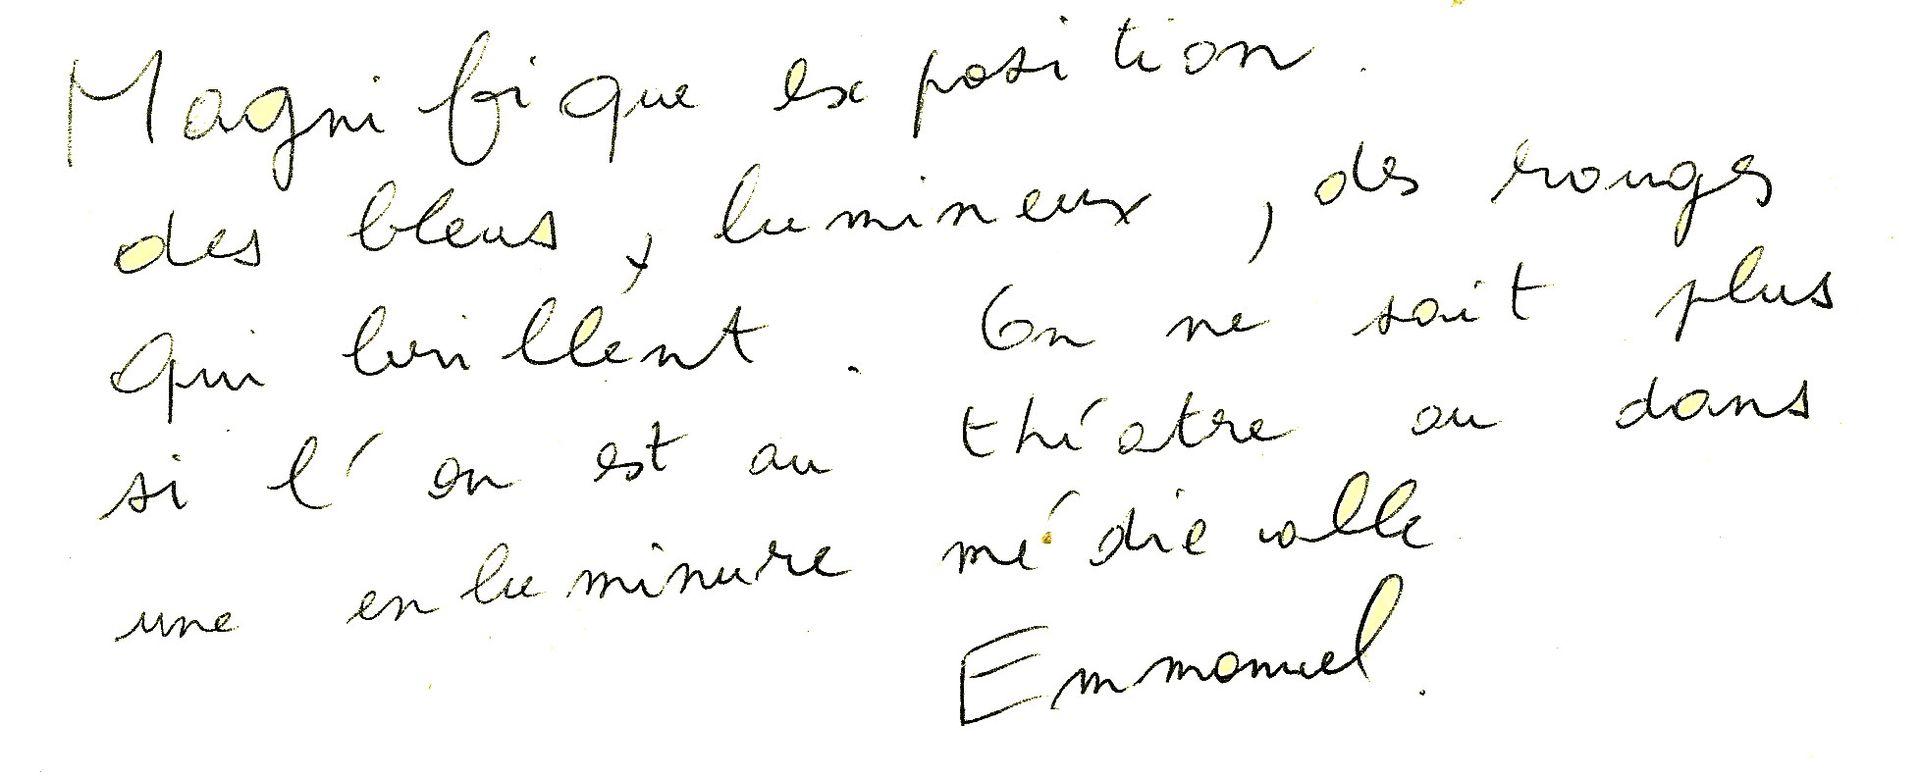 Magnifique exposition.
des bleus, lumineux, des rouges
qui brillent. On ne sait plus
si l'on est au théatre ou dans
une enluminure médiévalle
Emmanuel.